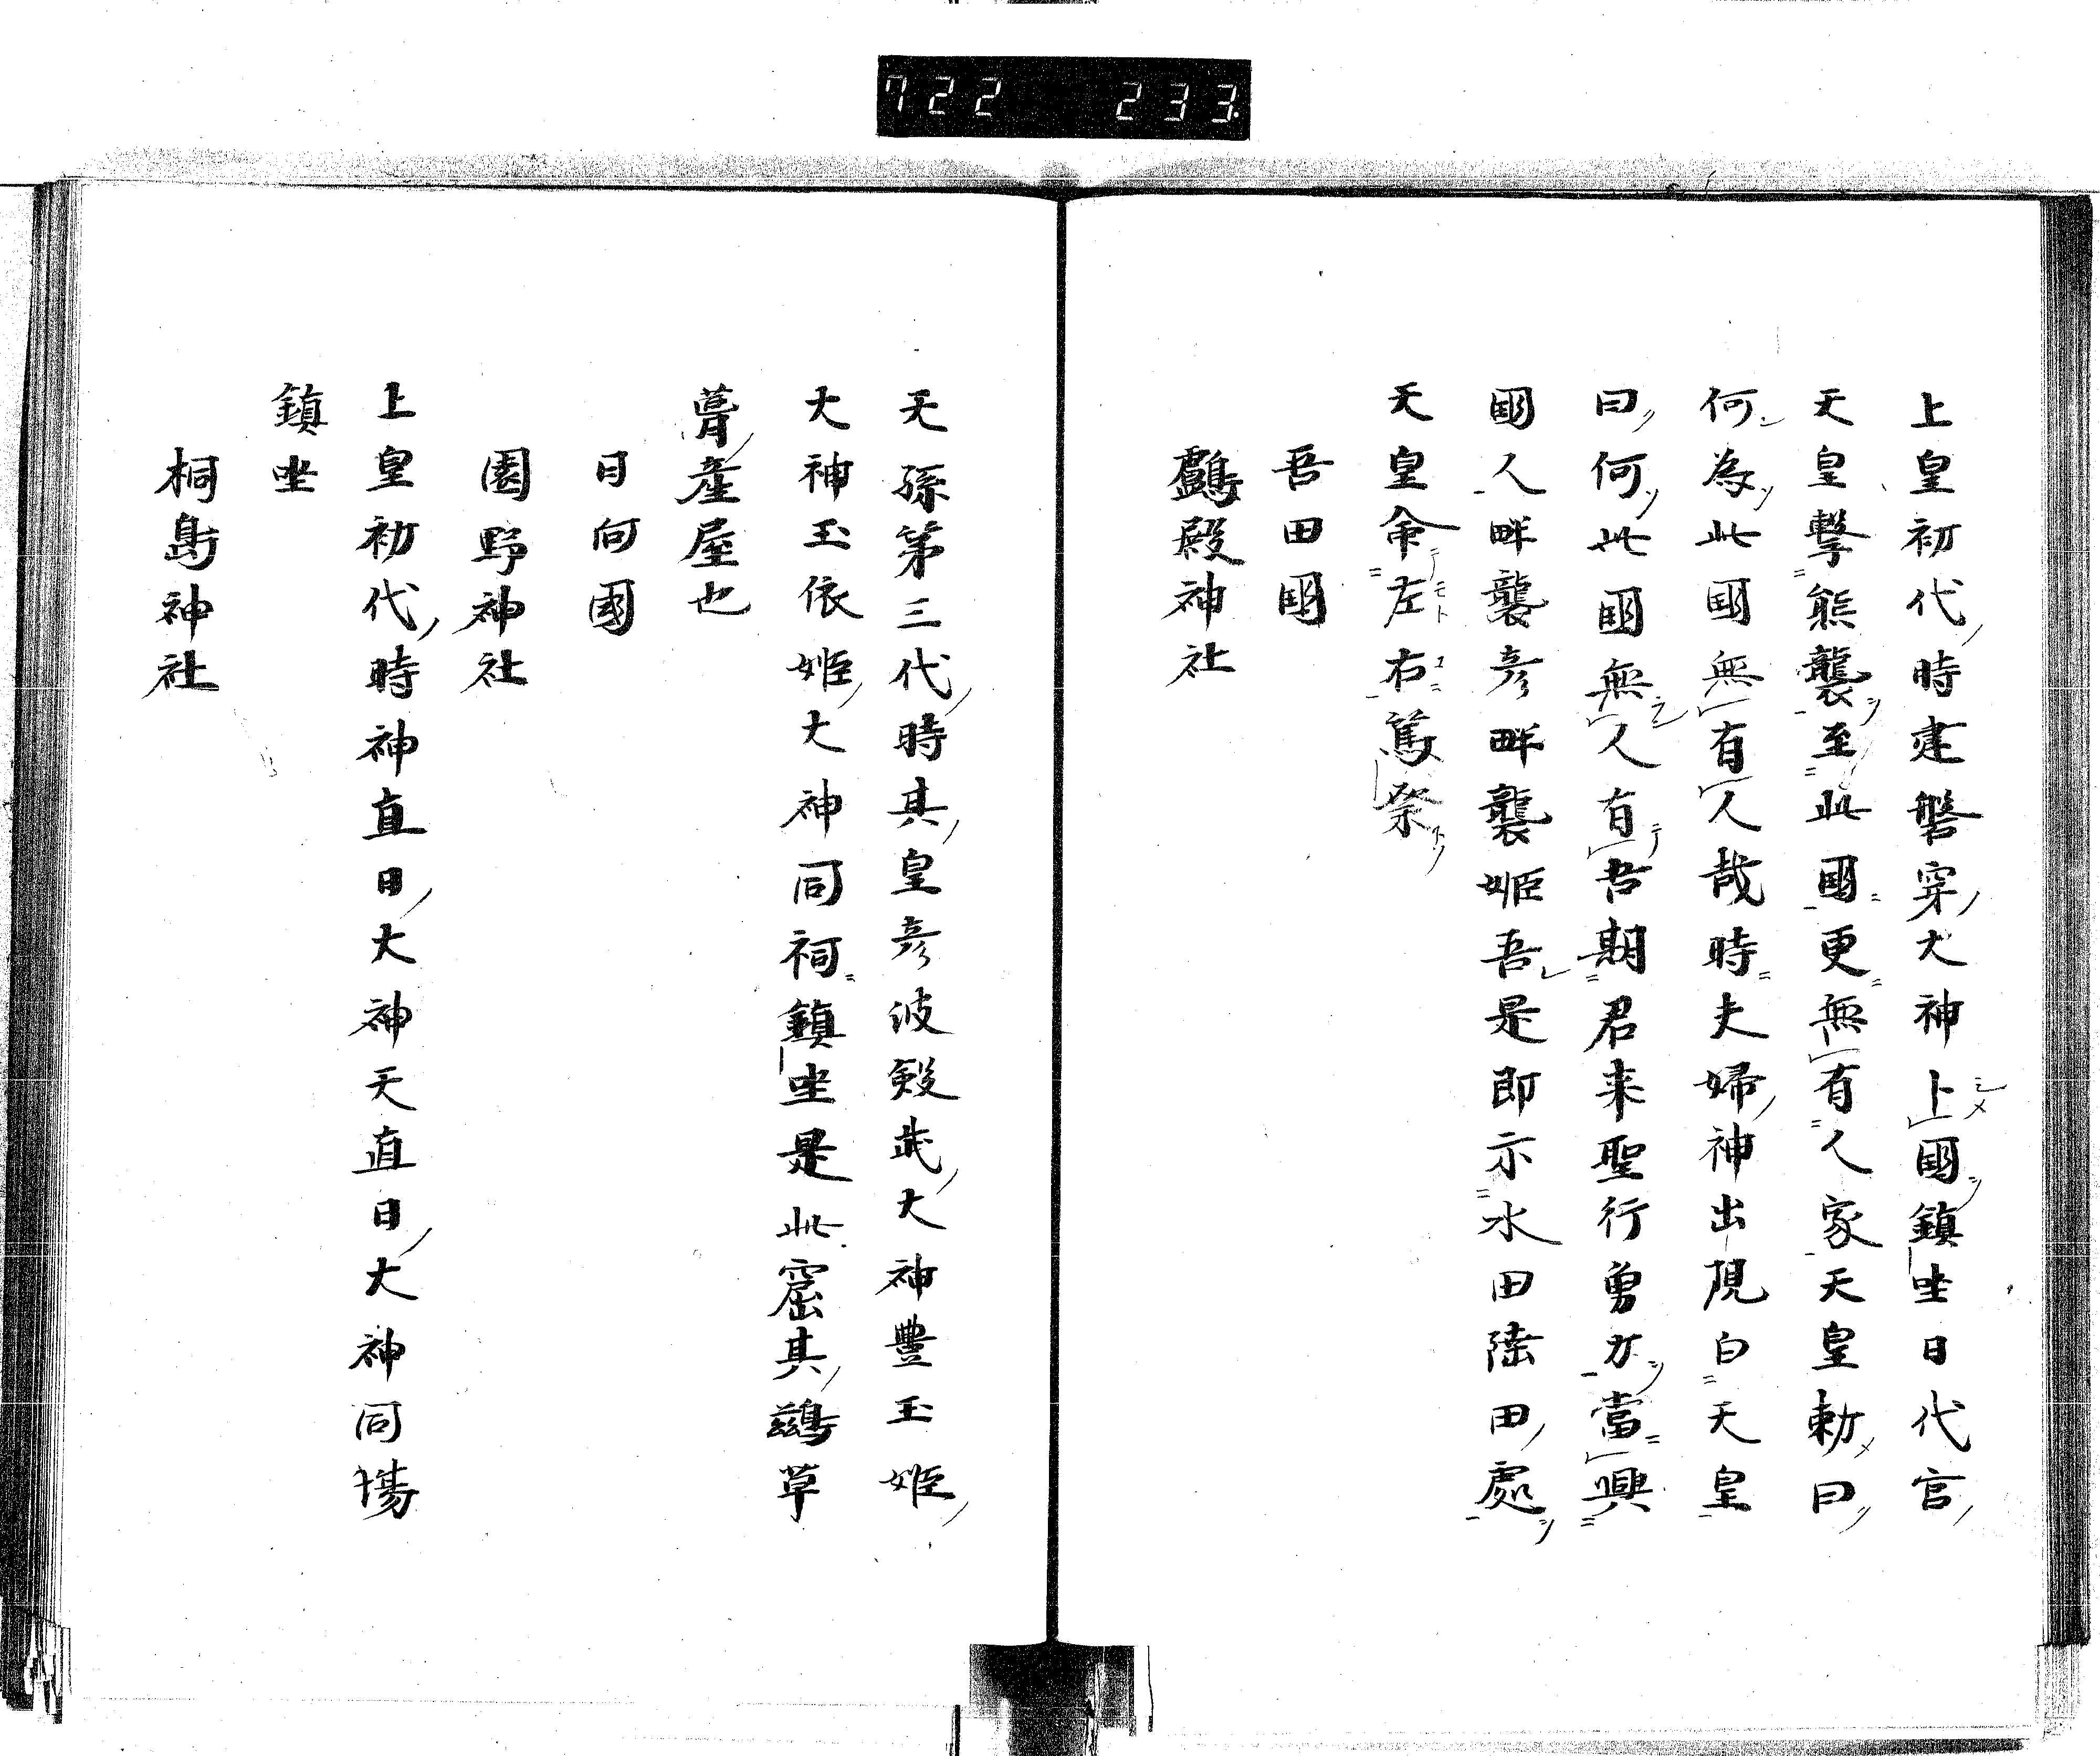 722 233
上皇初代時建磐穿大神上國鎮坐日代宮
天皇撃熊襲至此國更無有人家天皇勅曰
何為此國無有人哉時夫婦神出現白天皇
曰何此國無人有吾期君来聖行勇力當興
國人畔襲彦畔襲姫吾是即示水田陸田處
天皇命左右篤祭
吾田國
鸕殿神社
天孫第三代時其皇彦波瀲武大神豐玉姫
大神玉依姫大神同祠鎮坐是此窟其鷀草
葺產屋也
日向國
園野神社
上皇初代時神直日大神天直日大神同場
鎮坐
桐島神社